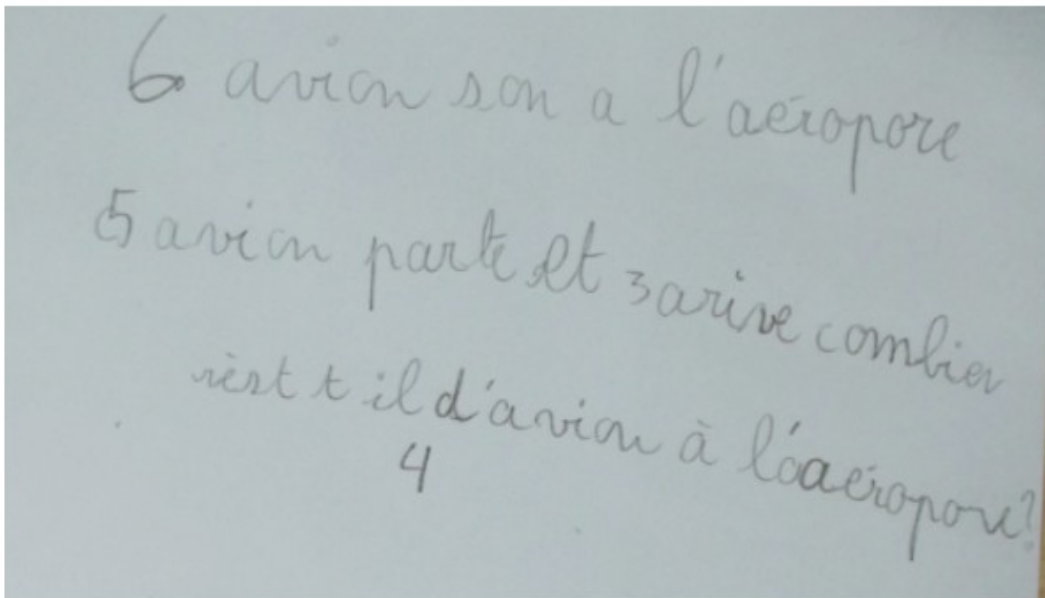 6 avion son a l'aéropore
5 avion parte et 3 arive combien
rèst t il d'avion à l'aaéropore?
4